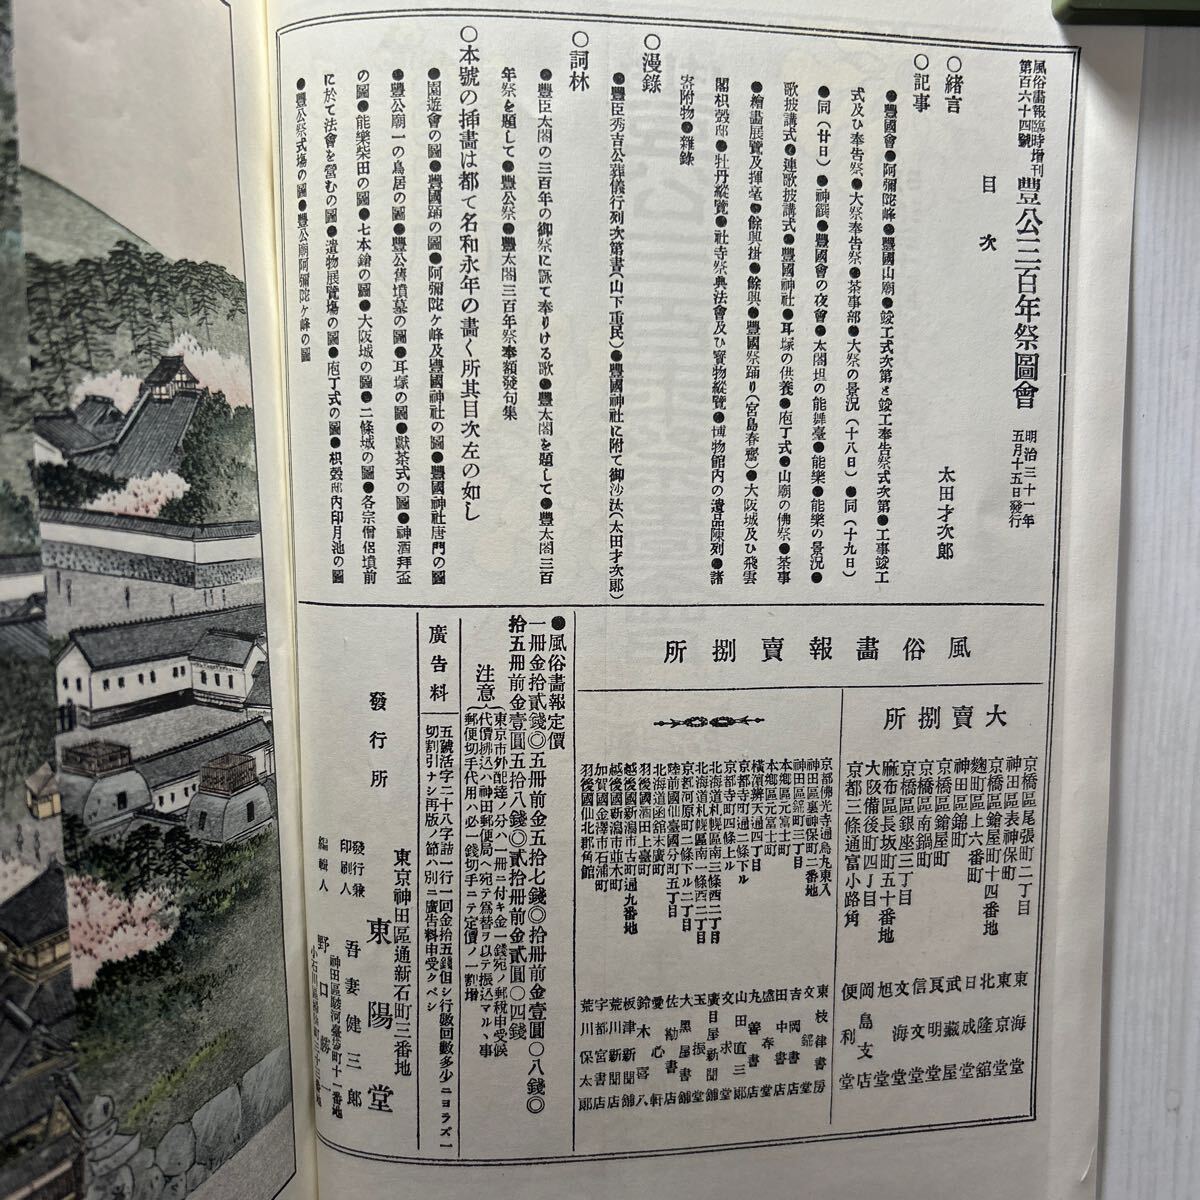 風俗畫報臨時增刊
第百六十四號
豐公三百年祭圖會
明治三十一年
五月十五日發行
目次
○緒言
太田才次郎
○記事
●豐國會●阿彌陀峰●豐國山廟●竣工式次第と竣工奉告祭式次第●工事竣工
式及ひ奉告祭●大祭奉告祭●茶事部●大祭の景況(十八日)●同(十九日)
●同(廿日)●神饌●豐國會の夜會●太閤坦の能舞臺●能樂●能樂の景況●
歌披講式●連歌披講式●豐國神社●耳塚の供養●庖丁式●山廟の佛祭●茶事
●繪畫展覽及揮毫●餘興掛●餘興●豐國祭踊り(宮島春齋)●大阪城及ひ飛雲
閣枳殼邸●牡丹縱覽●社寺祭典法會及ひ寳物縱覽●博物館内の遺品陳列●諸
寄附物●雜錄
○漫錄
●豐臣秀吉公葬儀行列次第書(山下重民)●豐國神社に附て御沙汰(太田才次郎)
○詞林
●豐臣太閤の三百年の御祭に詠て奉りける歌●豐太閤を題して●豐太閤三百
年祭を題して●豐公祭●豐太閤三百年祭奉額發句集
○本號の挿畫は都て名和永年の畫く所其目次左の如し
●園遊會の圖●豐國踊の圖●阿彌陀ヶ峰及豐國神社の圖●豐國神社唐門の圖
●豐公廟一の鳥居の圖●豐公舊墳墓の圖●耳塚の圖●獻茶式の圖●神酒拜盃
の圖●能樂柴田の圖●七本鎗の圖●大阪城の圖●二條城の圖●各宗僧侶墳前
に於て法會を營むの圖●遺物展覽塲の圖●庖丁式の圖●枳殼邸内印月池の圖
●豐公祭式塲の圖●豐公廟阿彌陀ヶ峰の圖
風俗畫報賣捌所
大賣捌所
京橋區尾張町二丁目 東海堂
神田區表神保町 東京堂
京橋區鎗屋町十四番地 北隆舘
麴町區上六番町 日成堂
神田區錦町 武藏屋
京橋區鎗屋町 良明堂
京橋區南鍋町 信文堂
京橋區銀座三丁目 文海堂
麻布區長坂町五十番地 旭堂
大阪備後町四丁目 岡島支店
京都三條通富小路角 便利堂
京都佛光寺通烏九東入 東枝律書房
神田區裏神保町二番地
神田區錦町三丁目 吉岡書店
本鄉區元富士町 田中書店
本鄉區元富士町 盛春堂
橫濱辨天通四丁目 丸善書店
京都寺町通二條下ル 山田直三郎
京都寺町四條上ル 文求堂
北海道札幌區南三條西二丁目 廣目屋新聞舖
北海道札幌區南一條西二丁目 玉振堂
京都河原町二條下ル二丁目 大黑屋書舖
陸前國仙臺國分町五丁目 佐勘書店
北海道函舘末廣町 愛心軒
羽後國酒田上臺町 鈴木喜八
越後國新潟市古町通九番地 板津新聞舖
越後國新潟市並木町 荒川新聞店
加賀國金澤市石浦町 宇都宮書店
羽後國仙北郡角館 荒川保太郎
●風俗畫報定價
一冊金拾貳錢◎五冊前金五拾七錢◎拾冊前金壹圓〇八錢◎
拾五冊前金壹圓五拾八錢◎貳拾冊前金貳圓〇四錢
注意
東京市外配達ノ分ハ一冊ニ付キ金一錢宛ノ郵稅申受候
代價拂込ハ神田郵便局ヘ宛テ爲替ヲ以テ振込マルヽ事
郵便切手代用ハ必一錢切手ニテ定價ノ一割增
廣告料
五號活字二十八字詰一行一回金拾五錢但シ行數回數多少ニヨラズ一
切割引ナシ再版ノ節ハ別ニ廣告料申受クベシ
發行所
東京神田區通新石町三番地
東陽堂
發行兼
印刷人
吾妻健三郎
神田區駿河臺袋町十一番地
編輯人
野口勝一